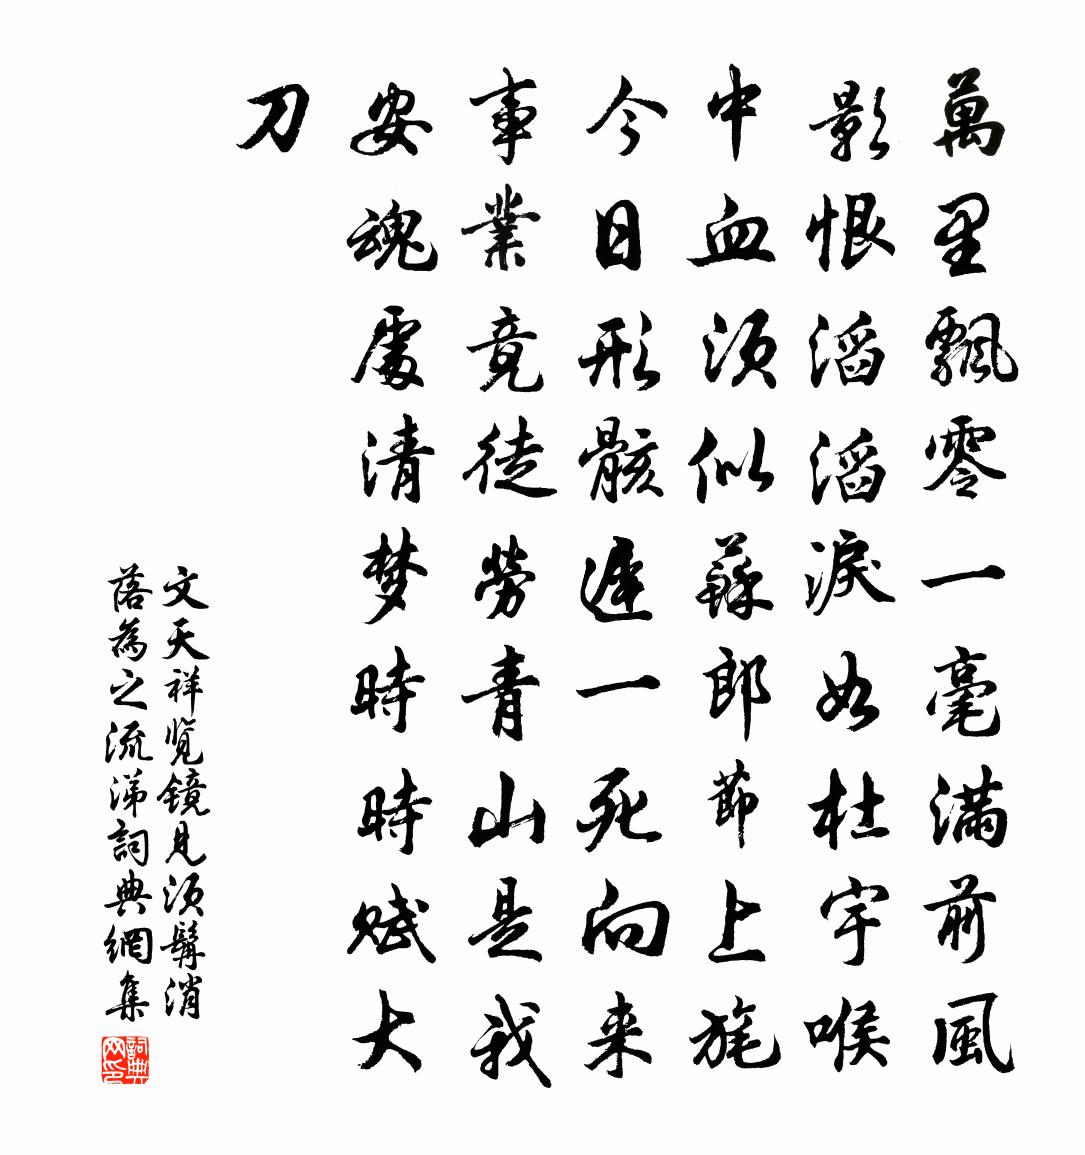 萬里飄零一毫滿前風
影恨滔滔淚如杜宇喉
中血須似蘇郎節上旄
今日形骸遲一死向来
事業竟徒勞青山是我
安魂處清梦時時賦大
刀
文天祥览鏡見須髯消
落為之流涕詞典網集
詞典
网印